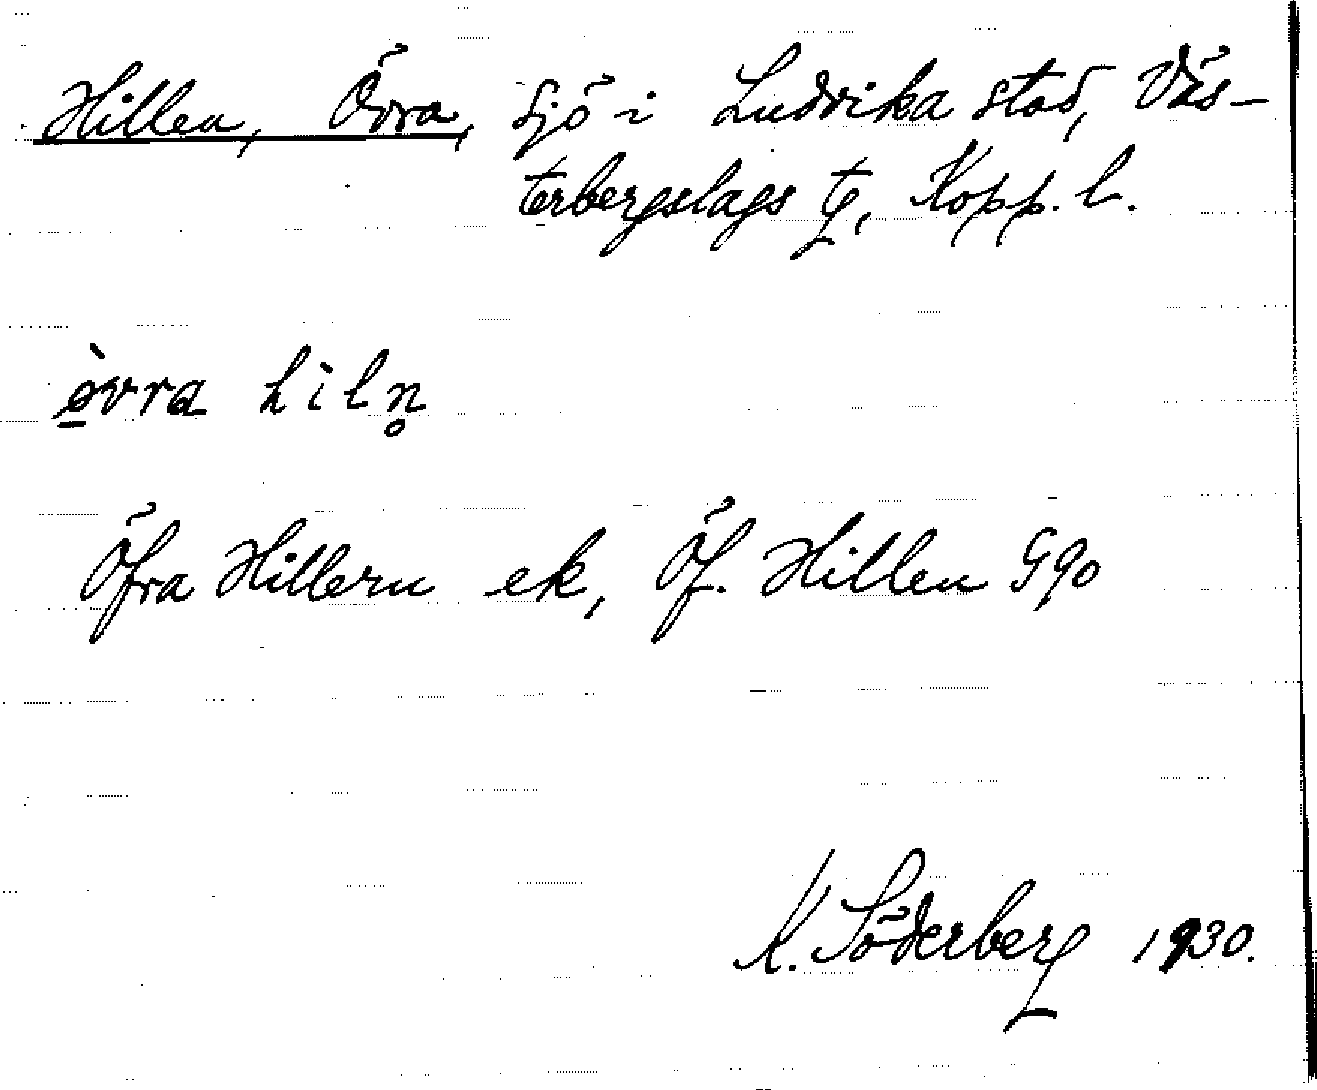 Hillen, Övra, sjö i Ludvika stad, Väs-
terbergslags tg, Kopp. l.
òvra hìln̥
Öfra Hillern ek, Öf. Hillen Gqo
K. Söderberg 1930.